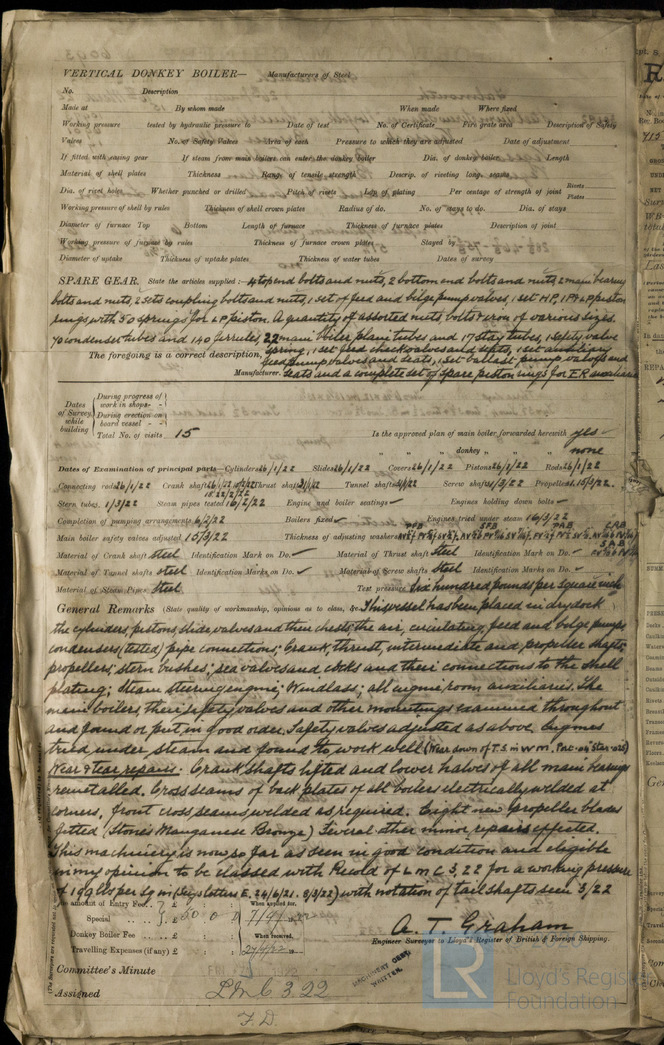 VERTICAL DONKEY BOILER— Manufacturers of Steel
No. Description
Made at By whom made When made Where fixed
Working pressure tested by hydraulic pressure to Date of test No. of Certificate Fire grate area Description of Safety
Valves No. of Safety Valves Area of each Pressure to which they are adjusted Date of adjustment
If fitted with easing gear If steam from main boilers can enter the donkey boiler Dia. of donkey boiler Length
Material of shell plates Thickness Range of tensile strength Descrip. of riveting long. seams
Dia. of rivet holes Whether punched or drilled Pitch of rivets Lap of plating Per centage of strength of joint Rivets Plates
Working pressure of shell by rules Thickness of shell crown plates Radius of do. No. of stays to do. Dia. of stays
Diameter of furnace Top Bottom Length of furnace Thickness of furnace plates Description of joint
Working pressure of furnace by rules Thickness of furnace crown plates Stayed by
Diameter of uptake Thickness of uptake plates Thickness of water tubes Dates of survey
SPARE GEAR. State the articles supplied:— 4 top end bolts and nuts, 2 bottom end bolts and nuts, 2 main bearing
bolts and nuts, 2 sets coupling bolts and nuts, 1 set of feed and bilge pump valves, 1 set H.P, I.P & L.P piston
rings with 50 springs for L.P piston. A quantity of assorted nuts, bolts & iron of various sizes.
70 condenser tubes and 140 ferrules, 22 main boiler plain tubes and 17 stay tubes, 1 safety valve
spring, 1 set feed check valves and seats, 1 set auxiliary
The foregoing is a correct description, feed pump valves and seats, 1 set ballast pump valves and
Manufacturer. seats and a complete set of spare piston rings for E.R auxiliaries
Dates of Survey while building
During progress of work in shops - -
During erection on board vessel - -
Total No. of visits 15
Is the approved plan of main boiler forwarded herewith yes
" " " donkey " " " none
Dates of Examination of principal parts—Cylinders 26/1/22 Slides 26/1/22 Covers 26/1/22 Pistons 26/1/22 Rods 26/1/22
Connecting rods 26/1/22 Crank shaft Thrust shaft Tunnel shafts Screw shaft 1/3/22 Propeller 1.15/3/22.
Stern tubes. 1/3/22 Steam pipes tested 16/2/22 Engine and boiler seatings ✓ Engines holding down bolts ✓
Completion of pumping arrangements 6/2/22 Boilers fixed ✓ Engines tried under steam 16/3/22
Main boiler safety valves adjusted 15/3/22 Thickness of adjusting washers
Material of Crank shaft steel Identification Mark on Do. ✓ Material of Thrust shaft steel Identification Mark on Do. ✓
Material of Tunnel shafts steel Identification Marks on Do. ✓ Material of Screw shafts steel Identification Marks on Do. ✓
Material of Steam Pipes Steel Test pressure Six hundred pounds per square inch
General Remarks (State quality of workmanship, opinions as to class, &c. This vessel has been placed in dry dock
the cylinders, pistons, slide valves and their chests, the air, circulating, feed and bilge pumps
condensers (tested) pipe connections; crank, thrust, intermediate and propeller shafts;
propellers; stern bushes; sea valves and cocks and their connections to the shell
plating; steam steering engine; Windlass; all engine room auxiliaries. The
main boilers, their safety valves and other mountings examined throughout
and found or put in good order. Safety valves adjusted as above. Engines
tried under steam and found to work well (Wear down of T.S in W.M. Port - oi Star - oi5)
Wear & tear repairs:- Crank shafts lifted and lower halves of all main bearings
remetalled. Cross seams of back plates of all boilers electrically welded at
corners, front cross seams welded as required. Eight new propeller blades
fitted (Stones Manganese Bronze) Several other minor repairs effected.
This machinery is now so far as seen in good condition and eligible
in my opinion to be classed with Record of L.M.C 3,22 for a working pressure
of 199 lbs per sq in (Secys letters E. 24/6/21. 8/3/22) with notation of tail shafts seen 3/22
The amount of Entry Fee £ : : When applied for,
Special £ 50 0 0 7/4/1922
Donkey Boiler Fee £ : : When received,
Travelling Expenses (if any) £ : : 27/4/22
A. T. Graham
Engineer Surveyor to Lloyd's Register of British & Foreign Shipping.
Committee's Minute
MACHINERY CERT. WRITTEN.
Assigned L.M.C 3.22
F.D.
LR
Lloyd's Register
Foundation